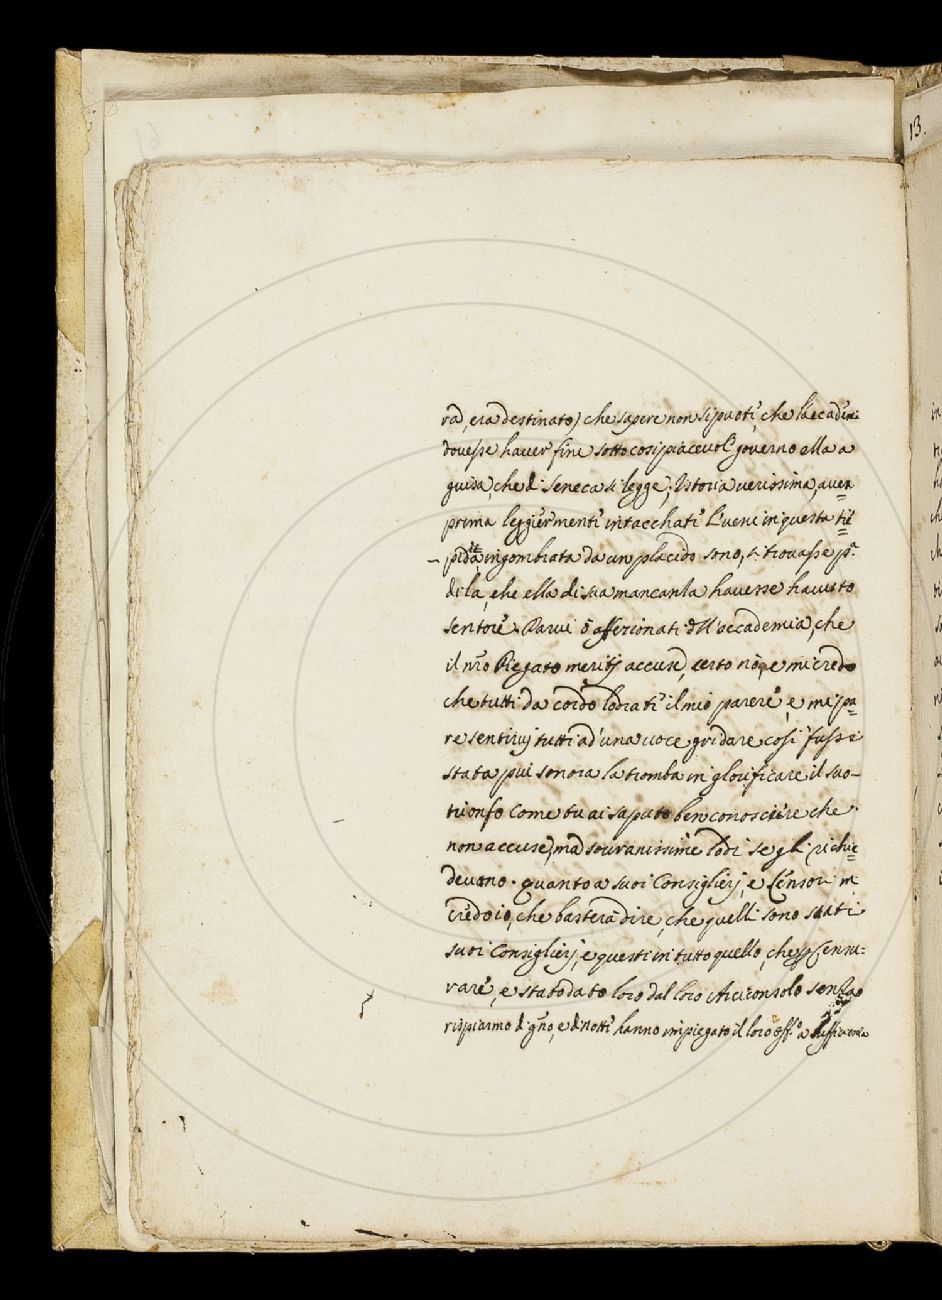 13.
ra, era destinato) che sapere non si puote, che l'accade͂m.
dovesse haver fine sotto cosi piacevol' governo ella a
guisa, che di Seneca si legge, Istoria verissima, aven=
prima leggierment' intacchate l'vene in questa tie=
pidà, ingombrata da un placido sono, si trovasse p.ª
di la, che ella di sua mancanza havesse havuto
sentore. Parvi o affezionati dell'accademia, che
il nr̃o Regato meritj accuse, certo nò, e mi credo
che tutti d'acordo lodiate il mio parere, e mi pa=
re sentirvj tutti ad'una voce gridare cosi fusse
stata piu sonora la tromba in glorificare il suo
trionfo come tu ai saputo ben conoscere che
non accuse, ma souranissime lodi se gli richie=
devano. quanto a suoi Consiglierj, e Censori m'
cred'io, che basterà dire, che quelli sono stati
suoi Consiglierj, e questi in tutto quello, che p Censu=
rare, e stato dato loro dal loro Arciconsolo senza
rispiarmo di gño, e di notte hanno impiegato il loro off.º a